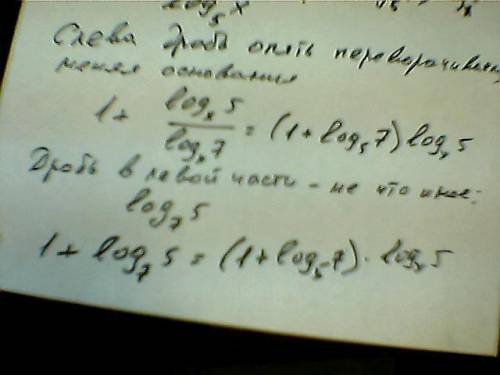 log₅ x
Слева дробь опять переворачиваем,
меняя основания
1 + logₓ 5 / logₓ 7 = (1 + log₅ 7) logₓ 5
Дробь в левой части - не что иное:
log₇ 5
1 + log₇ 5 = (1 + log₅ 7) · logₓ 5